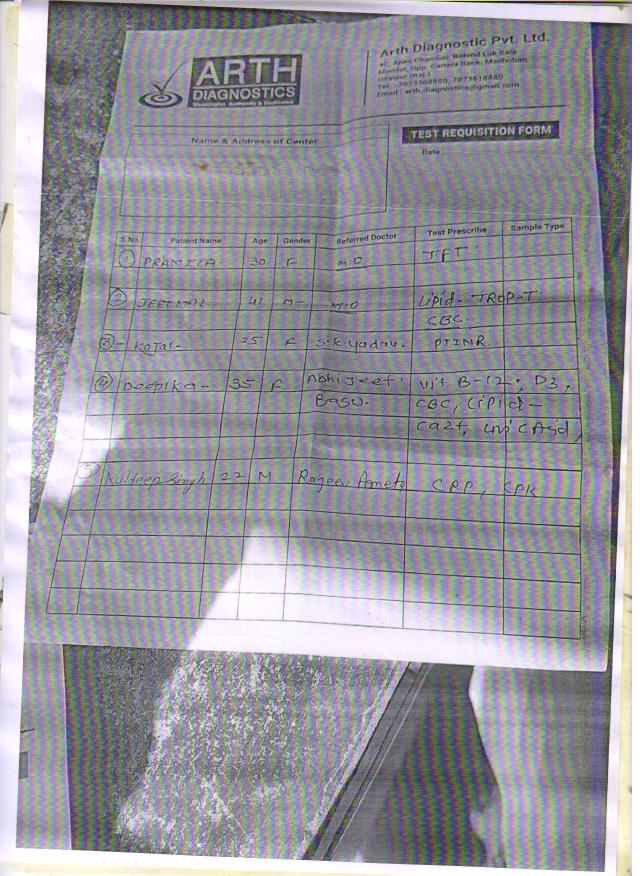 ARTH
DIAGNOSTICS
Arth Diagnostic Pvt. Ltd.
4C, Apex Chamber, Behind Lok Kala
Mandal, Opp. Canara Bank, Madhuban,
Udaipur (Raj.)
Tel. : 7073308880, 7073818880
Email : arth.diagnostics@gmail.com
Name & Address of Center
TEST REQUISITION FORM
Date :
S.No. Patient Name Age Gender Referred Doctor Test Prescribe Sample Type
1 PRAMILA 30 F M.O TFT
2 JEETMAL 41 M- M.O Lipid- TROP-T
CBC.
3- Kajal- 25 F S.K yadav. PTINR
4 Deepika- 35 F Abhijeet Vit B-12, D3,
Basu. CBC, Lipid-
Ca2+, Uric Acid,
5 Kuldeep Singh 22 M Rajeev Ameta CRP, CPK